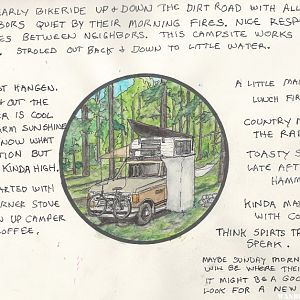 EARLY BIKERIDE UP & DOWN THE DIRT ROAD WITH ALL
BORS QUIET BY THEIR MORNING FIRES. NICE RESP
ES BETWEEN NEIGHBORS. THIS CAMPSITE WORKS
. STROLED OUT BACK & DOWN TO LITTLE WATER.
ST HANGEN.
& OUT THE
ER IS COOL
ARM SUNSHINE
NOW WHAT
TION BUT
KINDA HIGH.
ARTED WITH
RNER STOVE
N UP CAMPER
OFFEE.
A LITTLE MA
LUNCH FIR
COUNTRY M
THE RAI
TOASTY S
LATE AFT
HAMM
KINDA MA
WITH CO
THINK SPIRTS TR
SPEAK.
MAYBE SUNDAY MORN
WILL BE WHERE THE
IT MIGHT BE A GOO
LOOK FOR A NEW